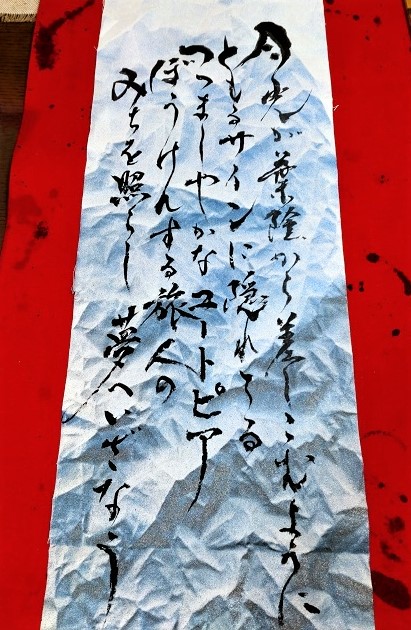 月光が葉陰から差しこむように
ともるサインに隠れてる
つつましやかなユートピア
ぼうけんする旅人の
みちを照らし 夢へいざなう